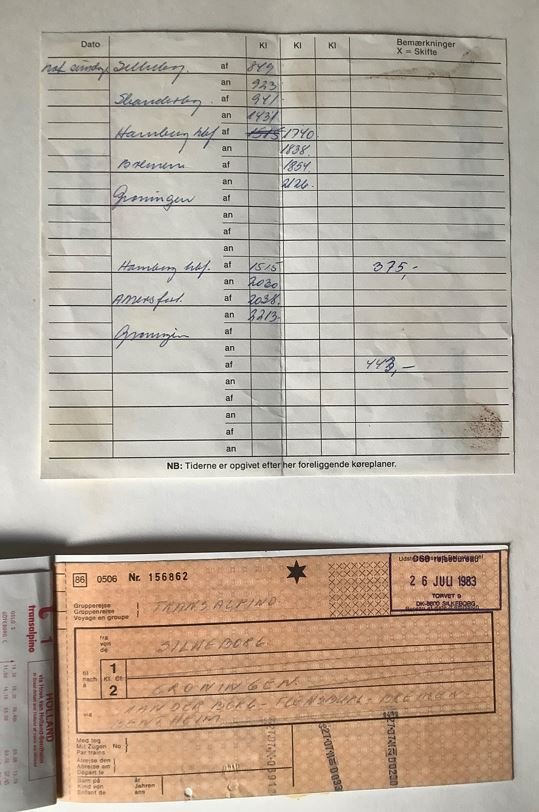 Dato Kl Kl Kl Bemærkninger
X = Skifte
Silkeborg af 849
an 923
Skanderborg af 941
an 1431
Hamburg hbf af 1515 1740
an 1838
Bremen af 1854
an 2126
Groningen af
an
af
an
Hamburg hbf. af 1515 375,-
an 2030
Amersfoort af 2038
an 2213
Groningen af
an
af 443,-
an
af
an
af
an
NB: Tiderne er opgivet efter her foreliggende køreplaner.
86 0506 Nr. 156862
DSB-rejsebureau
26 JULI 1983
TORVET 9
DK-8600 SILKEBORG
Grupperejse
Gruppenreise
Voyage en groupe
TRANSALPINO
fra
von
de
SILKEBORG
til
nach
à
1
Kl. Cl.
2
GRONINGEN
via
VANDER BORG - FLENSBURG - BREMEN
BENTHEIM
Med tog
Mit Zügen No
Par trains
Afrejse den
Abreise am
Départ le
Barn på
Kind von
Enfant de
år
Jahren
ans
transalpino
HOLLAND